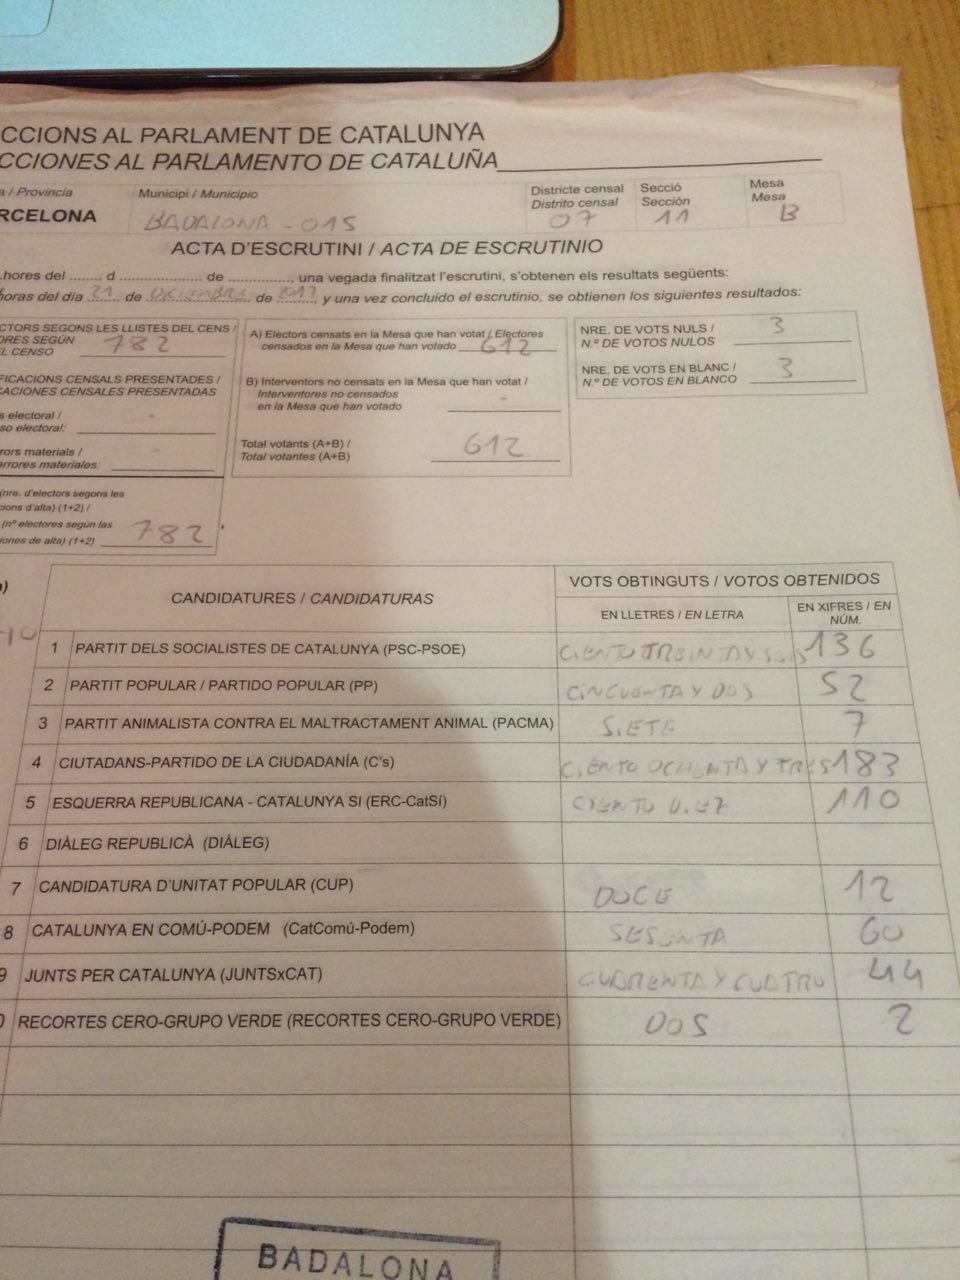 CCIONS AL PARLAMENT DE CATALUNYA
CCIONES AL PARLAMENTO DE CATALUÑA
a / Provincia Municipi / Municipio Districte censal Secció Mesa
Distrito censal Sección Mesa
RCELONA BADALONA - 015 07 11 B
ACTA D'ESCRUTINI / ACTA DE ESCRUTINIO
hores del ........ d ..................... de ..............., una vegada finalitzat l'escrutini, s'obtenen els resultats següents:
horas del día 21 de DICIEMBRE de 2017, y una vez concluido el escrutinio, se obtienen los siguientes resultados:
CTORS SEGONS LES LLISTES DEL CENS /
ORES SEGÚN
EL CENSO 782
FICACIONS CENSALS PRESENTADES /
CACIONES CENSALES PRESENTADAS
s electoral /
so electoral: -
rors materials /
errores materiales: -
(nre. d'electors segons les
cions d'alta) (1+2) /
(nº electores según las
iones de alta) (1+2) 782
A) Electors censats en la Mesa que han votat / Electores
censados en la Mesa que han votado 612
B) Interventors no censats en la Mesa que han votat /
Interventores no censados
en la Mesa que han votado -
Total votants (A+B) /
Total votantes (A+B) 612
NRE. DE VOTS NULS /
N.º DE VOTOS NULOS 3
NRE. DE VOTS EN BLANC /
N.º DE VOTOS EN BLANCO 3
CANDIDATURES / CANDIDATURAS VOTS OBTINGUTS / VOTOS OBTENIDOS
EN LLETRES / EN LETRA EN XIFRES / EN
NÚM.
1 PARTIT DELS SOCIALISTES DE CATALUNYA (PSC-PSOE) CIENTO TREINTA Y SEIS 136
2 PARTIT POPULAR / PARTIDO POPULAR (PP) CINCUENTA Y DOS 52
3 PARTIT ANIMALISTA CONTRA EL MALTRACTAMENT ANIMAL (PACMA) SIETE 7
4 CIUTADANS-PARTIDO DE LA CIUDADANÍA (C's) CIENTO OCHENTA Y TRES 183
5 ESQUERRA REPUBLICANA - CATALUNYA SI (ERC-CatSí) CIENTO DIEZ 110
6 DIÀLEG REPUBLICÀ (DIÀLEG)
7 CANDIDATURA D'UNITAT POPULAR (CUP) DOCE 12
8 CATALUNYA EN COMÚ-PODEM (CatComú-Podem) SESENTA 60
9 JUNTS PER CATALUNYA (JUNTSxCAT) CUARENTA Y CUATRO 44
0 RECORTES CERO-GRUPO VERDE (RECORTES CERO-GRUPO VERDE) DOS 2
BADALONA